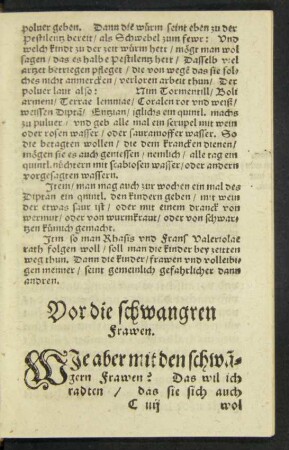 polver geben. Dann die würm seint eben zu der
Pestilentz bereit/ als Schwebel zum fewr: Vnd
welch kindt zu der zeit würm hett/ mögt man wol
sagen/ das es halbe Pestilentz hett/ Dasselb viel
artzet betriegen pfleget/ die von wegē das sie sol-
ches nicht anmercken/ verloren arbeit thun. Der
polver laut also: Nim Tormentill/ Bolt
armeni/ Terrae lemniae/ Coralen rot vnd weiß/
weissen Diptā/ Entzian/ iglichs ein quintl. machs
zu pulver/ vnd geb alle mal ein scrupel mit wein
oder rosen wasser/ oder sauramoffer wasser. So
die betagten wollen/ die dem krancken dienen/
mögen sie es auch geniessen/ nemlich/ alle tag ein
quintl. nüchtern mit scabiosen wasser/ oder andern
vorgesagten wassern.
Item/ man mag auch zur wochen ein mal des
Diptan ein quintl. den kindern geben/ mit wein
der etwas saur ist/ oder mit einem dranck von
wermut/ oder von wurmkraut/ oder von schwar-
tzen künnich gemacht.
Itm so man Rhasis vnd Frans Valeriolae
rath folgen woll/ soll man die kinder bey zeitten
weg thun. Dann die kinder/ frawen vnd volleibi-
gen menner/ seint gemeinlich gefahrlicher dann
andren.
Vor die schwangren
Frawen.
WJe aber mit den schwā-
gern Frawen? Das wil ich
radten/ das sie sich auch
C iiij wol